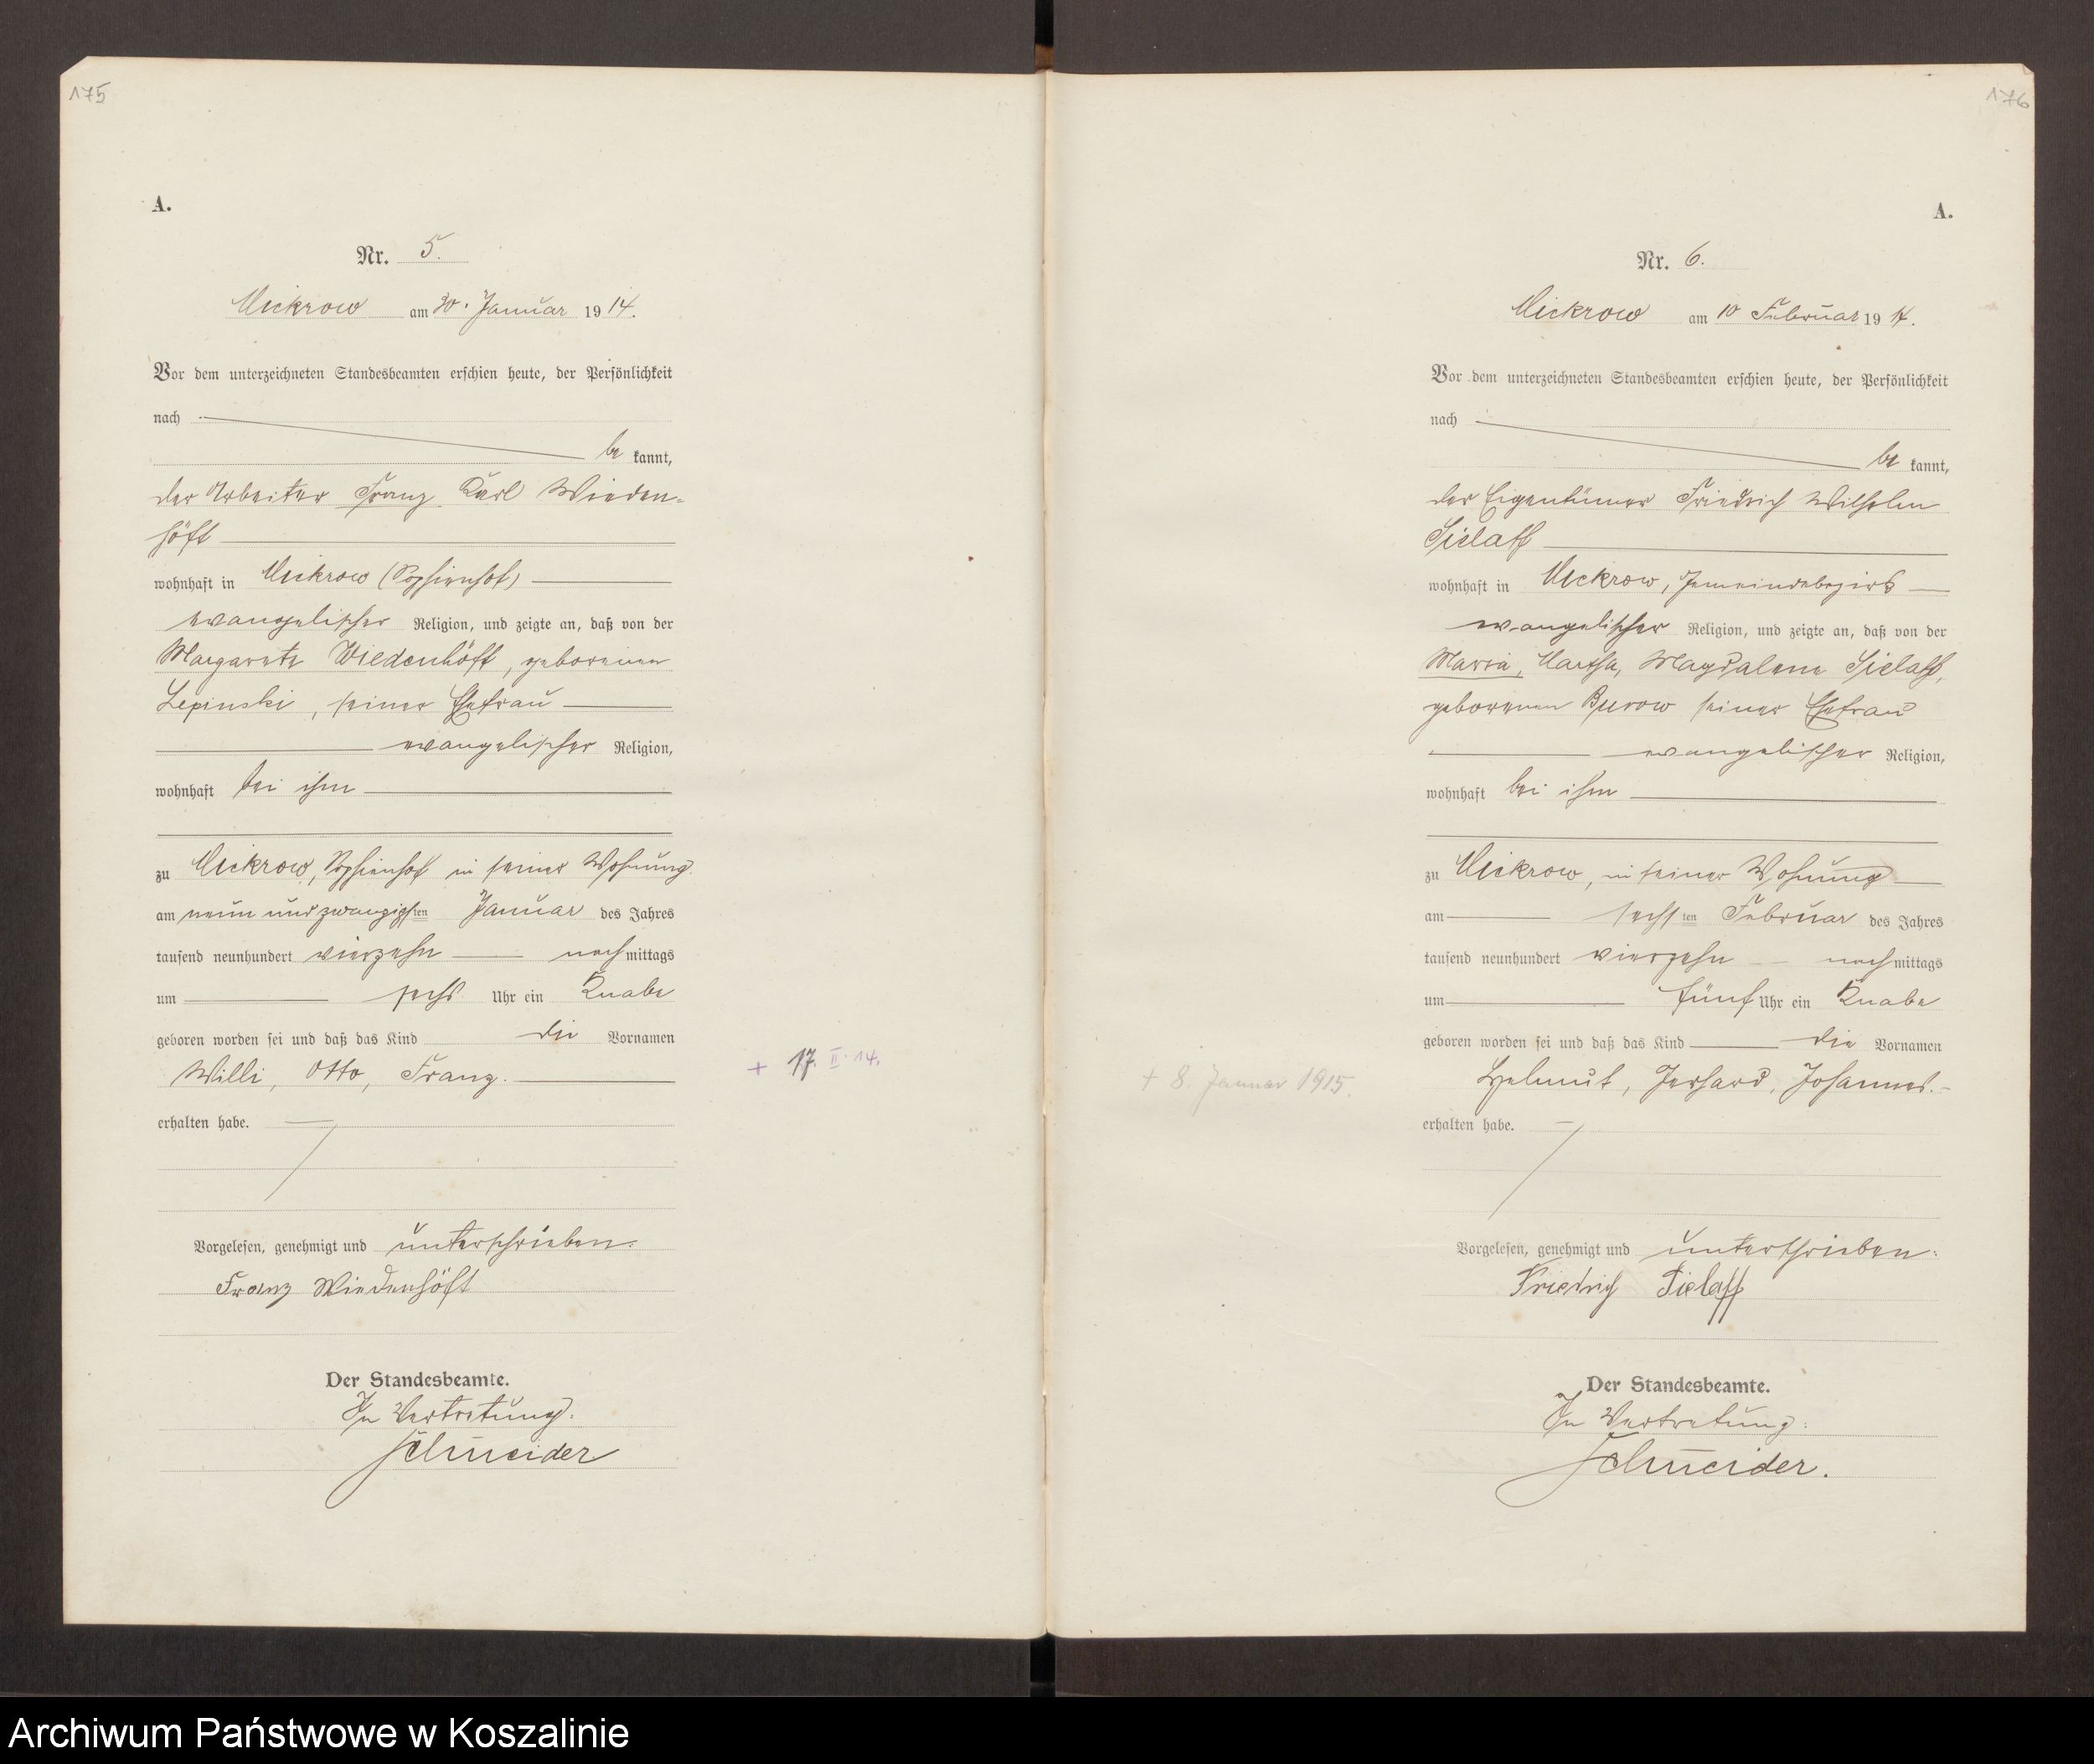 175
A.
Nr. 5.
Mickrow am 30. Januar 1914.
Vor dem unterzeichneten Standesbeamten erschien heute, der Persönlichkeit
nach
be kannt,
der Arbeiter Franz Karl Wieden-
höft
wohnhaft in Mickrow (Sophienhof)
evangelischer Religion, und zeigte an, daß von der
Margarete Wiedenhöft, geborenen
Lepinski, seiner Ehefrau
evangelischer Religion,
wohnhaft bei ihm
zu Mickrow, Sophienhof in seiner Wohnung
am neun und zwanzigsten Januar des Jahres
tausend neunhundert vierzehn nachmittags
um sechs Uhr ein Knabe
geboren worden sei und daß das Kind die Vornamen
Willi, Otto, Franz.
+ 17. II. 14.
erhalten habe.
Vorgelesen, genehmigt und unterschrieben.
Franz Wiedenhöft
Der Standesbeamte.
In Vertretung:
Schneider
176
A.
Nr. 6.
Mickrow am 10 Februar 1914.
Vor dem unterzeichneten Standesbeamten erschien heute, der Persönlichkeit
nach
be kannt,
der Eigentümer Friedrich Wilhelm
Sielaff
wohnhaft in Mickrow, Gemeindebezirk
evangelischer Religion, und zeigte an, daß von der
Maria, Martha, Magdalene Sielaff,
geborenen Burow seiner Ehefrau
evangelischer Religion,
wohnhaft bei ihm
zu Mickrow, in seiner Wohnung
am sechsten Februar des Jahres
tausend neunhundert vierzehn nachmittags
um fünf Uhr ein Knabe
geboren worden sei und daß das Kind die Vornamen
+ 8. Januar 1915.
Helmut, Gerhard, Johannes.
erhalten habe.
Vorgelesen, genehmigt und unterschrieben:
Friedrich Sielaff
Der Standesbeamte.
In Vertretung:
Schneider.
Archiwum Państwowe w Koszalinie